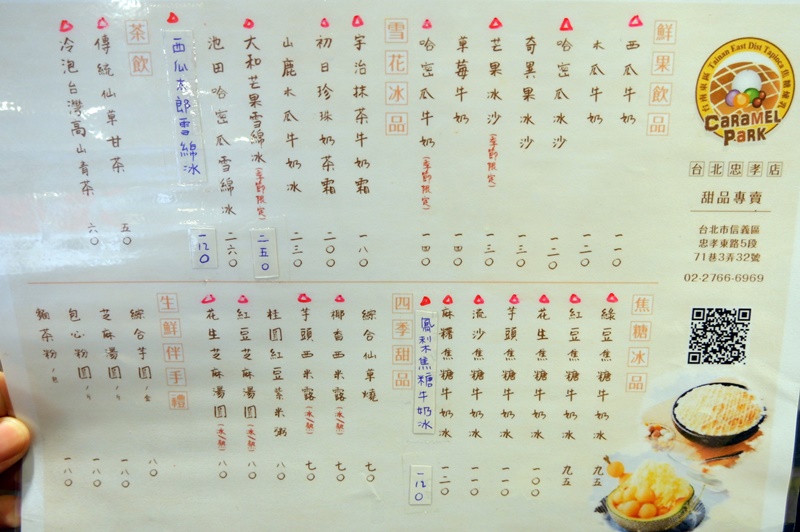 鮮果飲品
西瓜牛奶 一一〇
木瓜牛奶 一二〇
哈密瓜冰沙 一二〇
奇異果冰沙 一三〇
芒果冰沙(季節限定) 一三〇
草莓牛奶 一四〇
哈密瓜牛奶(季節限定) 一四〇
雪花冰品
宇治抹茶牛奶霜 一八〇
初日珍珠奶茶霜 二〇〇
山鹿木瓜牛奶冰 二三〇
大和芒果雪綿冰(季節限定) 二五〇
池田哈密瓜雪綿冰 二六〇
西瓜太郎雪綿冰 一二〇
茶飲
傳統仙草甘茶 五〇
冷泡台灣高山青茶 六〇
焦糖冰品
綠豆焦糖牛奶冰 九五
紅豆焦糖牛奶冰 九五
花生焦糖牛奶冰 一〇〇
芋頭焦糖牛奶冰 一一〇
流沙焦糖牛奶冰 一一〇
麻糬焦糖牛奶冰 一二〇
鳳梨焦糖牛奶冰 一二〇
四季甜品
綜合仙草燒 七〇
椰香西米露(冰/熱) 七〇
芋頭西米露(冰/熱) 七〇
桂圓紅豆紫米粥 八〇
紅豆芝麻湯圓(冰/熱) 八〇
花生芝麻湯圓(冰/熱) 八〇
生鮮伴手禮
綜合芋圓 八〇
芝麻湯圓 一八〇
包心粉圓 一八〇
麵茶粉/包 一八〇
Tainan East Dist Tapioca
CaRaMEL
PaRK
台北忠孝店
甜品專賣
台北市信義區
忠孝東路5段
71巷3弄32號
02-2766-6969